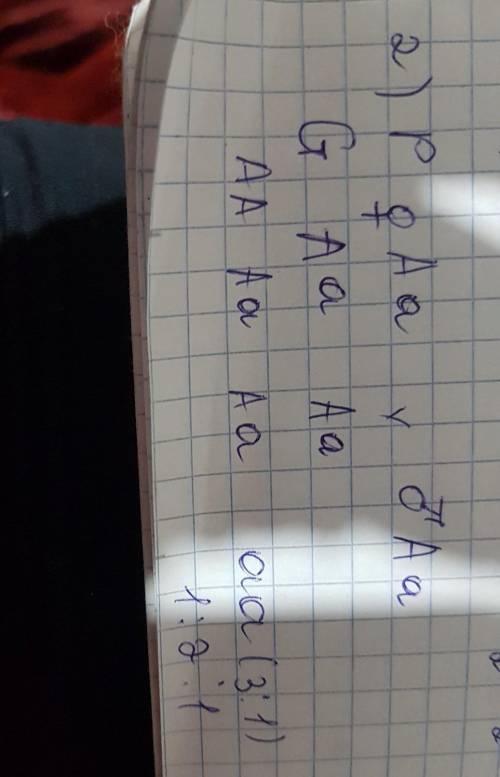 2) P ♀Aa x ♂Aa
G Aa Aa
AA Aa Aa aa (3:1)
1:2:1